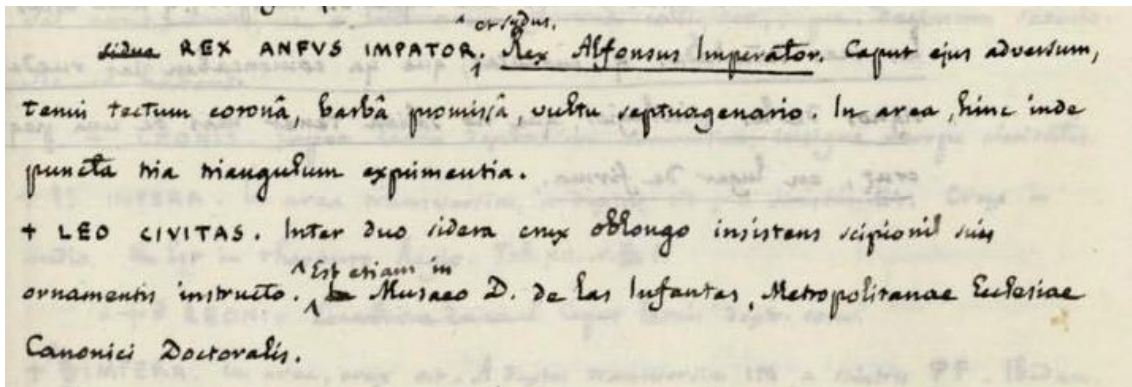 et sydus.
sidus REX ANFVS IMPATOR. Rex Alfonsus Imperator. Caput ejus adversum,
tenui tectum coronâ, barbâ promissâ, vultu septuagenario. In area, hinc inde
puncta tria triangulum exprimentia.
+ LEO CIVITAS. Inter duo sidera crux oblongo insistens scipioni suis
Est etiam in
ornamentis instructo. Musaeo D. de las Infantas, Metropolitanae Ecclesiae
Canonici Doctoralis.